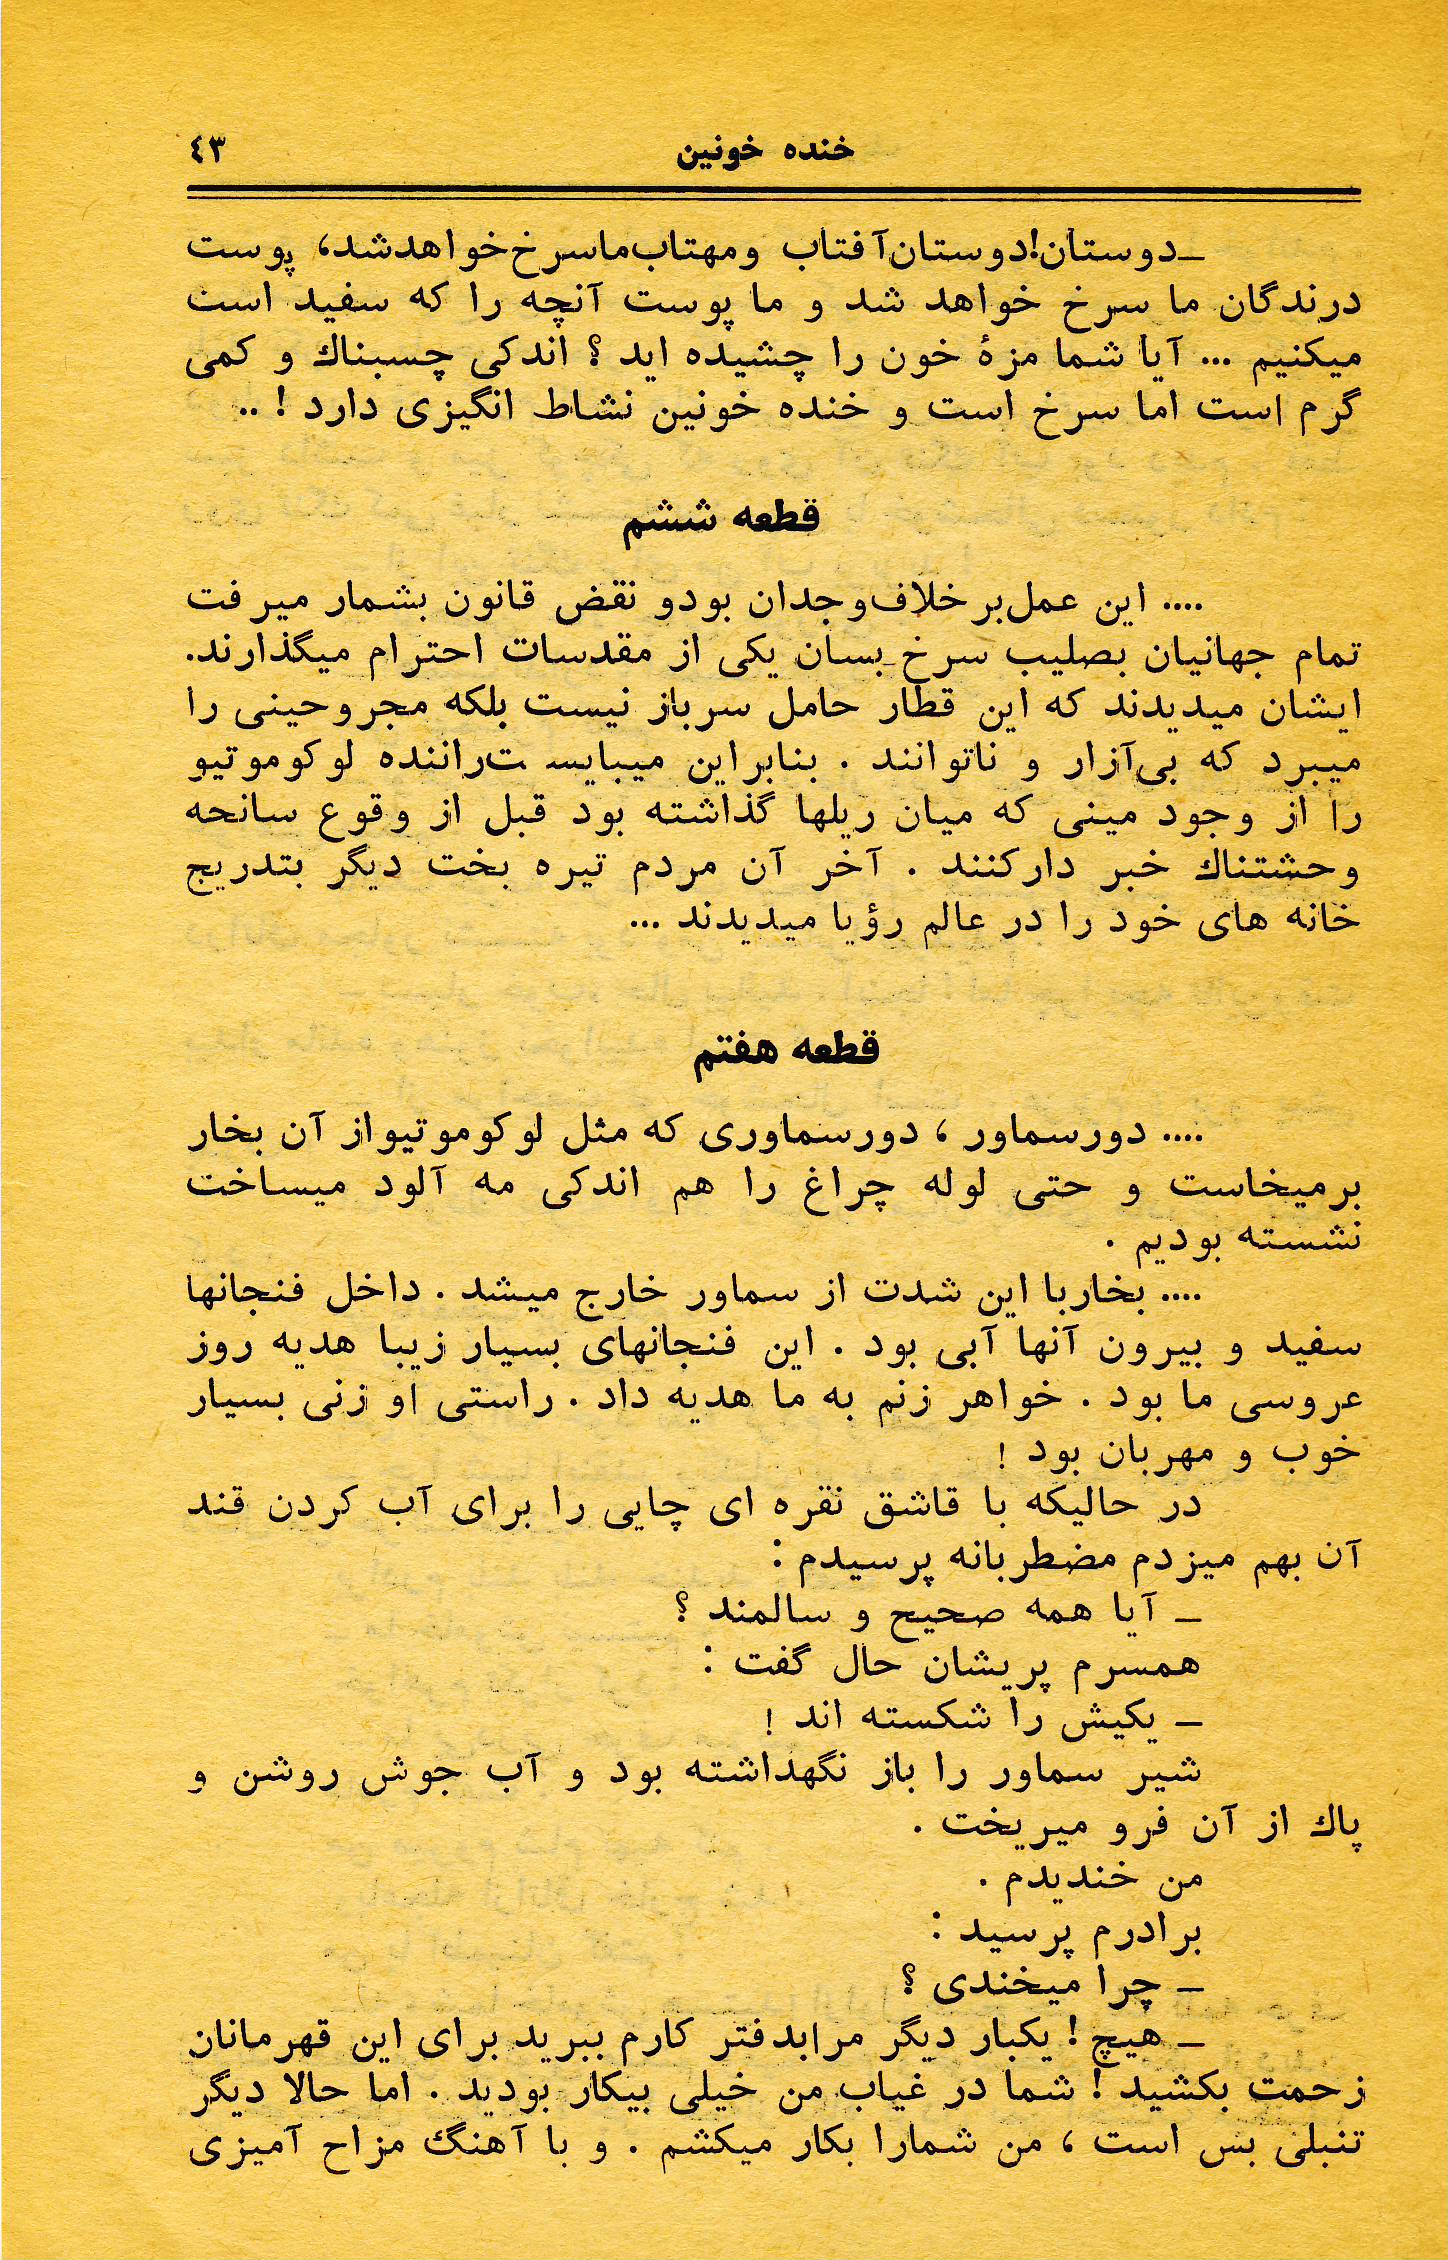 خنده خونین ٤٣
ـ دوستان! دوستان آفتاب و مهتاب ما سرخ خواهد شد، پوست
درندگان ما سرخ خواهد شد و ما پوست آنچه را که سفید است
میکنیم ... آیا شما مزۀ خون را چشیده اید ؟ اندکی چسبناك و کمی
گرم است اما سرخ است و خنده خونین نشاط انگیزی دارد ! ..
قطعه ششم
.... این عمل بر خلاف وجدان بود و نقض قانون بشمار میرفت
تمام جهانیان بصلیب سرخ بسان یکی از مقدسات احترام میگذارند.
ایشان میدیدند که این قطار حامل سرباز نیست بلکه مجروحینی را
میبرد که بی‌آزار و ناتوانند . بنابراین میبایست راننده لوکوموتیو
را از وجود مینی که میان ریلها گذاشته بود قبل از وقوع سانحه
وحشتناك خبر دارکنند . آخر آن مردم تیره بخت دیگر بتدریج
خانه های خود را در عالم رؤیا میدیدند ...
قطعه هفتم
.... دورسماور ، دورسماوری که مثل لوکوموتیو از آن بخار
برمیخاست و حتی لوله چراغ را هم اندکی مه آلود میساخت
نشسته بودیم .
.... بخاربا این شدت از سماور خارج میشد . داخل فنجانها
سفید و بیرون آنها آبی بود . این فنجانهای بسیار زیبا هدیه روز
عروسی ما بود . خواهر زنم به ما هدیه داد . راستی او زنی بسیار
خوب و مهربان بود !
در حالیکه با قاشق نقره ای چایی را برای آب کردن قند
آن بهم میزدم مضطربانه پرسیدم :
ـ آیا همه صحیح و سالمند ؟
همسرم پریشان حال گفت :
ـ یکیش را شکسته اند !
شیر سماور را باز نگهداشته بود و آب جوش روشن و
پاك از آن فرو میریخت .
من خندیدم .
برادرم پرسید :
ـ چرا میخندی ؟
ـ هیچ ! یکبار دیگر مرا بدفتر کارم ببرید برای این قهرمانان
زحمت بکشید ! شما در غیاب من خیلی بیکار بودید . اما حالا دیگر
تنبلی بس است ، من شمارا بکار میکشم . و با آهنگ مزاح آمیزی